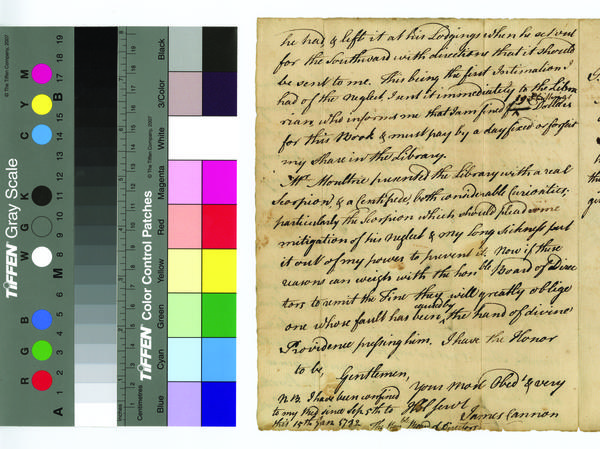 he had & left it at his Lodgings when he set out
for the Southward with directions that it should
be sent to me. This being the first Intimation I
had of the Neglect, I sent it immediately to the Libra
rian, who informs me that I am fined
for this Book & must pay by a day fixed or forfeit
my Share in the Library.
Mr. Moultrie presented the Library with a real
Scorpion, & a Centipee, both considerable Curiosities,
particularly the Scorpion which should plead some
mitigation of his Neglect & my long Sickness put
it out of my power to prevent it. Now if these
reasons can weigh with the honble Board of Direc
tors to remit the Fine they will greatly oblige
one whose fault has been the hand of divine
Providence pressing him. I have the Honor
to be Gentlemen,
Your most Obedt & very
N.B. I have been confined
to my Bed since Sep 5th to
Hble Servt
James Cannon
this 15th Jan 1782
TIFFEN Gray Scale
© The Tiffen Company, 2007
R G B W G K C Y M
A 1 2 3 4 5 6 M 8 9 10 11 12 13 14 15 B 17 18 19
TIFFEN Color Control Patches
© The Tiffen Company, 2007
Inches
Centimetres
Blue
Cyan
Green
Yellow
Red
Magenta
White
3/Color
Black